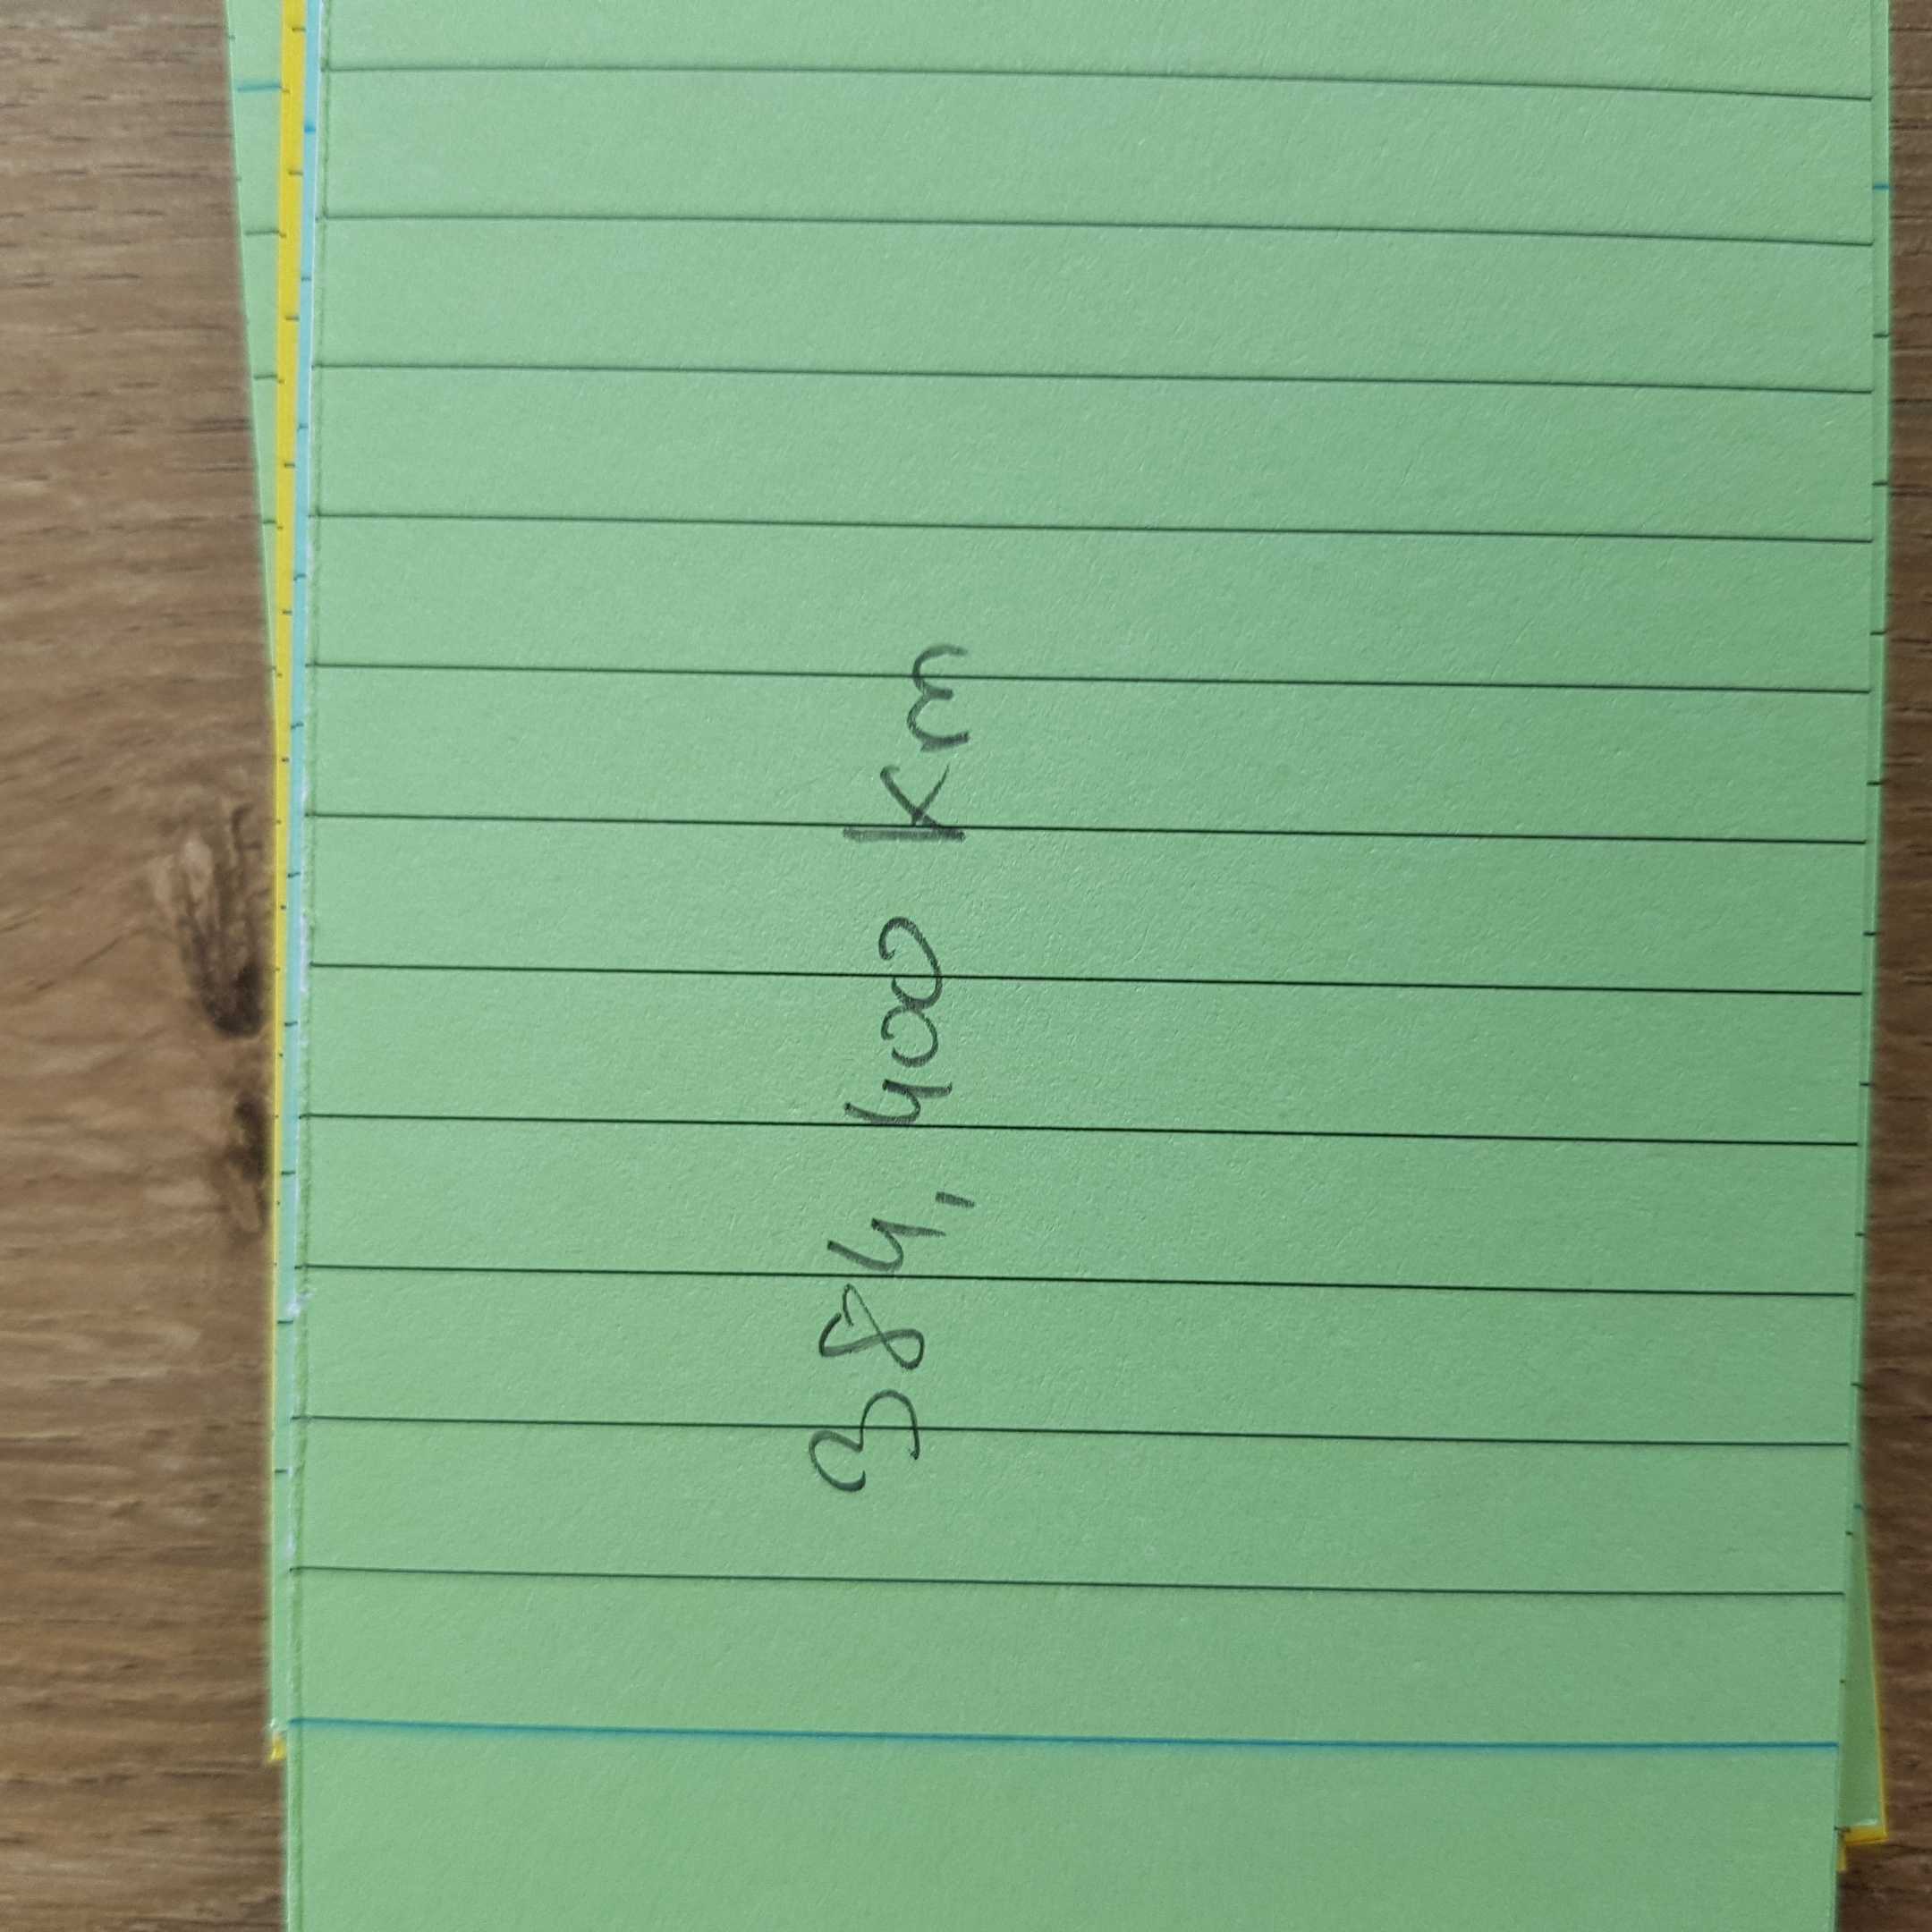 384,400 km